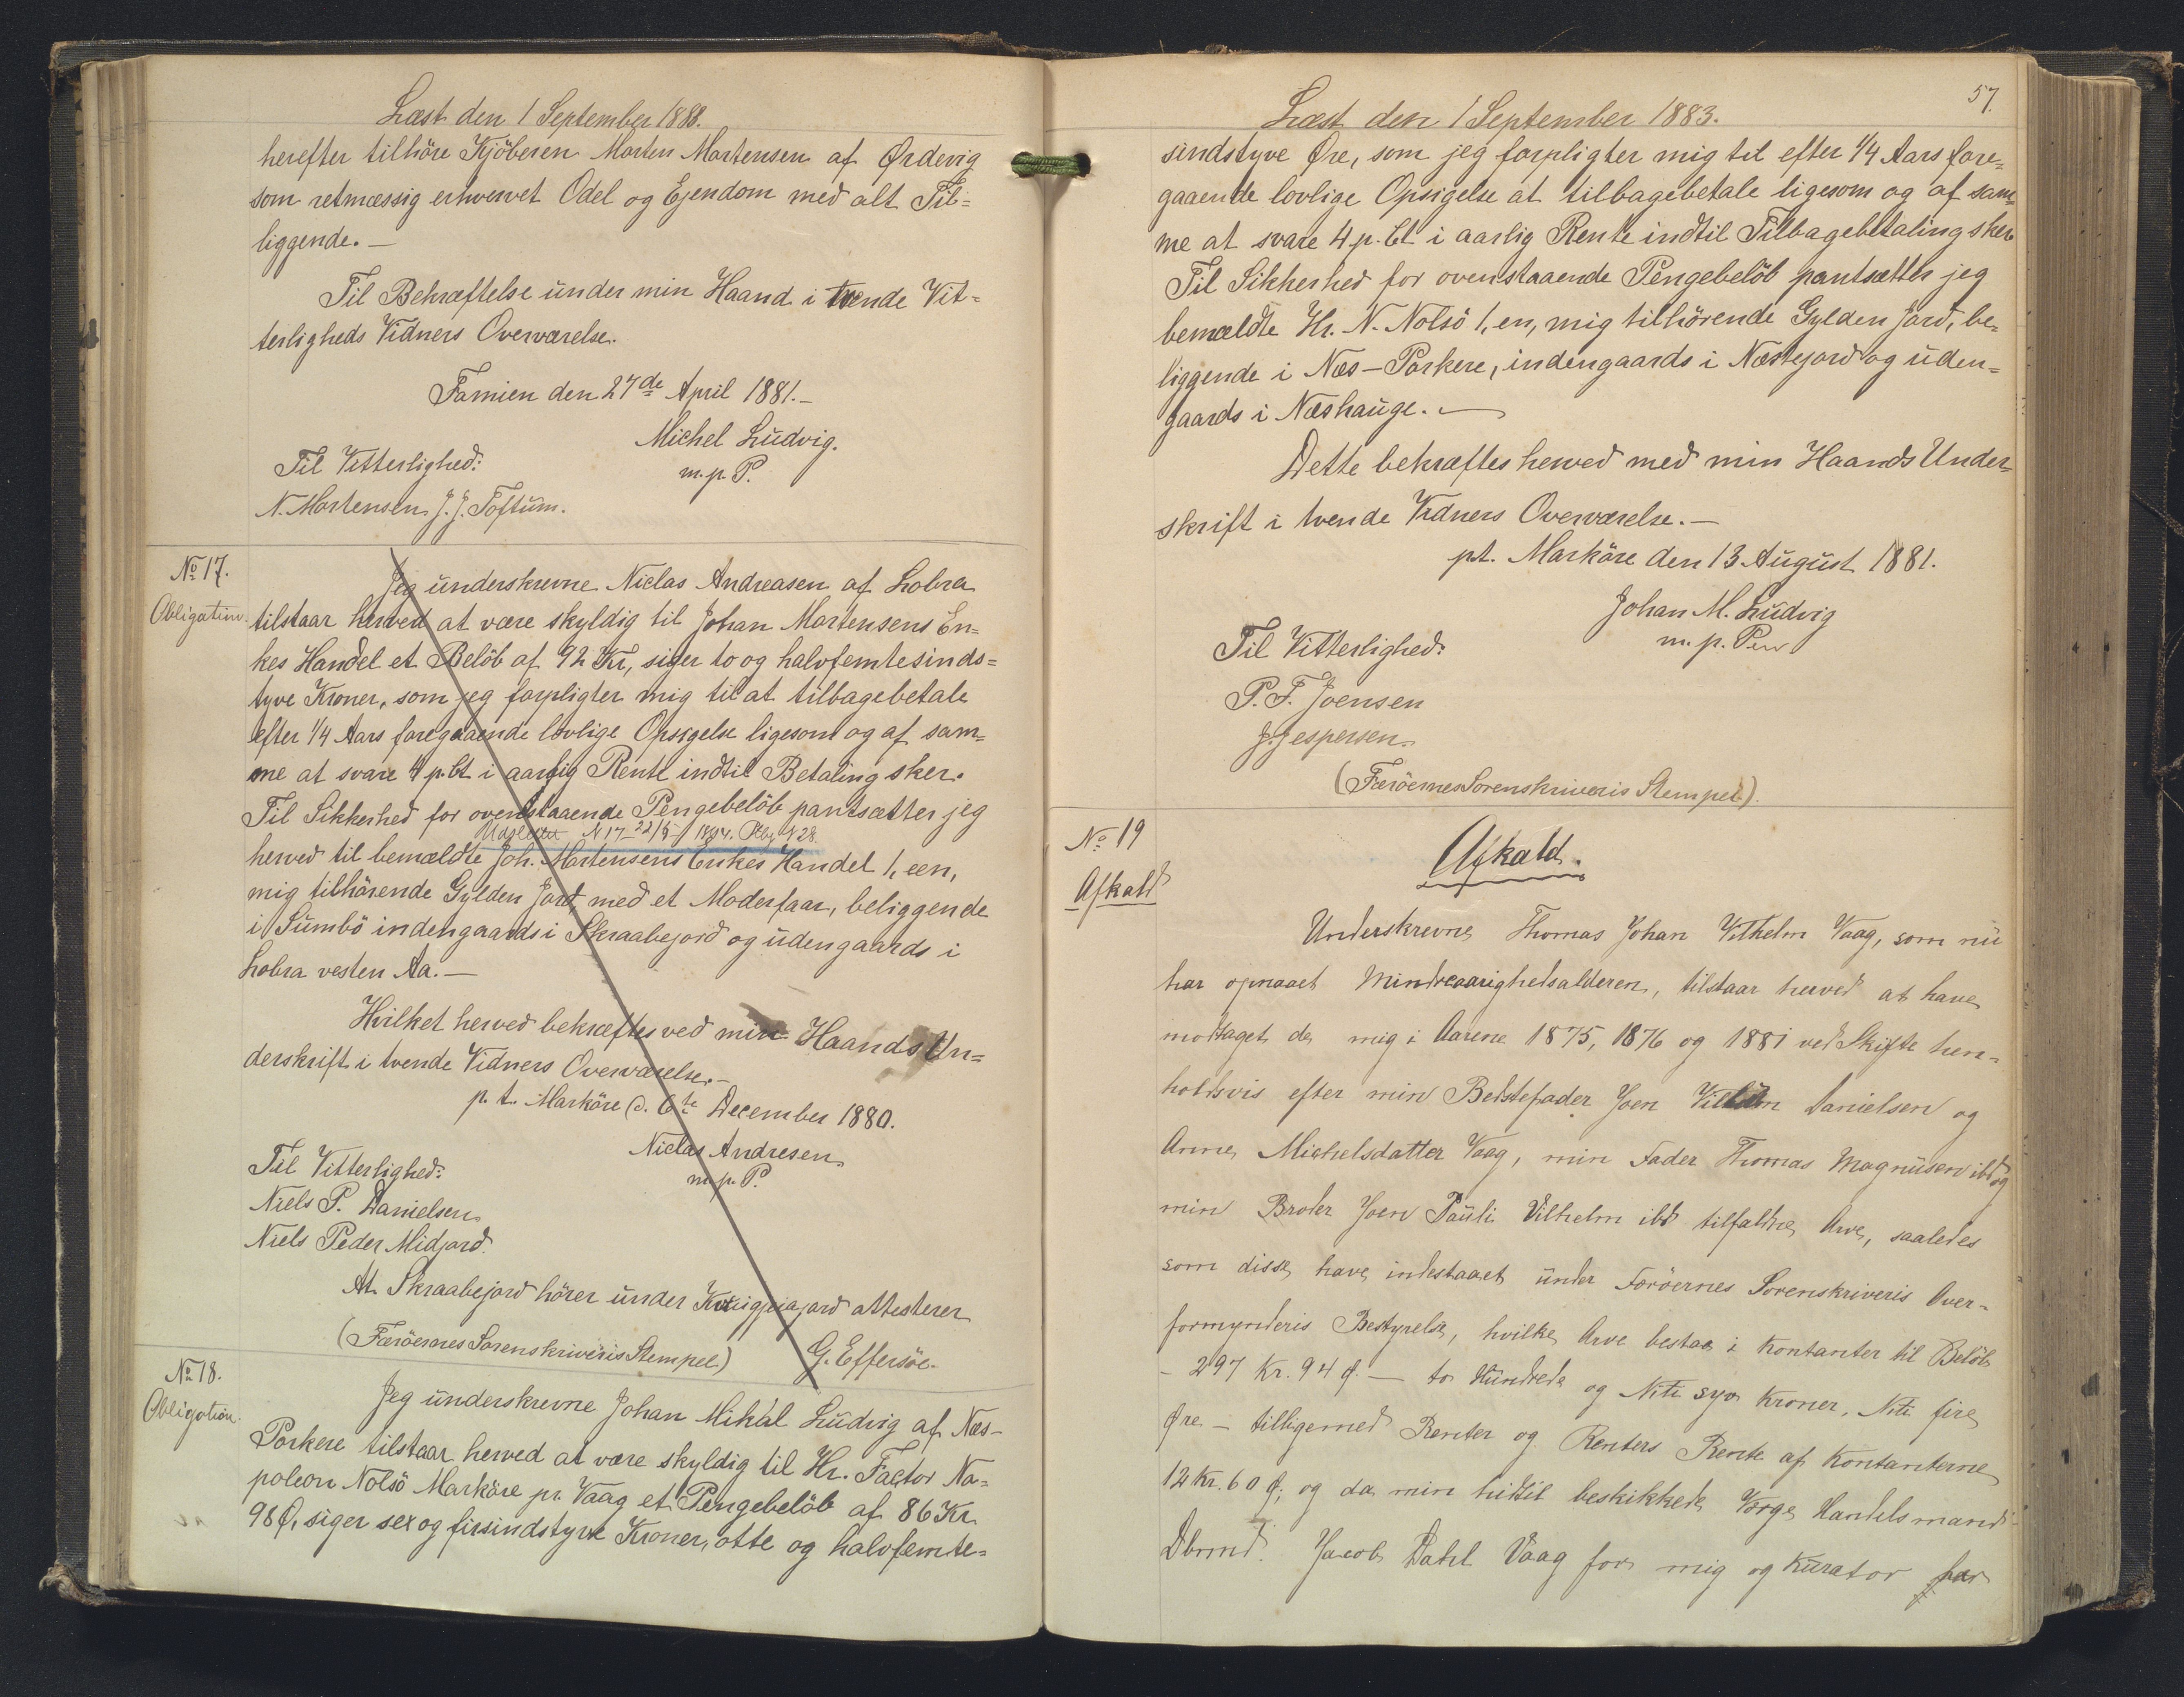 Læst den 1 September 1883.
herefter tilhöre Kjöberen Morten Mortensen af Ørdevig
som retmæssig erhvervet Odel og Ejendom med alt Til=
liggende. —
Til Bekræftelse under min Haand i tvende Vit=
terligheds Vidners Overværelse.
Famien den 27de April 1881. —
Michel Ludvig.
m. p. P.
Til Vitterlighed:
N. Mortensen J. J. Toftum.
No 17.
Obligation.
Jeg underskrevne Niclas Andreasen af Lobra
tilstaar herved at være skyldig til Johan Mortensens En=
kes Handel et Belöb af 92 Kr, siger to og halvfemtesinds=
tyve Kroner, som jeg forpligter mig til at tilbagebetale
efter 1/4 Aars foregaaende lovlige Opsigelse ligesom og af sam=
me at svare 4 p. Ct i aarlig Rente indtil Betaling sker.
Til Sikkerhed for ovenstaaende Pengebelöb pantsætter jeg
Udslettet N 17 22/5 1894. Ptbg N 28.
herved til bemældte Joh. Mortensens Enkes Handel 1, een,
mig tilhörende Gylden Jord med et Moderfaar, beliggende
i Sumbö indengaards i Skraabejord og udengaards i
Lobra vesten Aa. —
Hvilket herved bekræftes ved min Haands Un=
derskrift i tvende Vidners Overværelse. —
p. t. Marköre d. 6te December 1880.
Niclas Andresen
m. p. P.
Til Vitterlighed:
Niels P. Danielsen
Niels Peder Midjord.
At Skraabejord hörer under attesterer
(Færöernes Sorenskriveris Stempel) G. Effersöe.
No 18.
Obligation.
Jeg underskrevne Johan Mikal Ludvig af Næs-
Porkere tilstaar herved at være skyldig til Hr. Factor Na=
poleon Nolsö Marköre pr. Vaag et Pengebelöb af 86 Kr
98 Ø, siger sex og firsindstyve Kroner, otte og halvfemte=
57.
Læst den 1 September 1883.
sindstyve Øre, som jeg forpligter mig til efter 1/4 Aars fore=
gaaende lovlige Opsigelse at tilbagebetale ligesom og af sam=
me at svare 4 p. Ct i aarlig Rente indtil Tilbagebetaling sker
Til Sikkerhed for ovenstaaende Pengebelöb pantsætter jeg
bemældte Hr. N. Nolsö 1, en, mig tilhörende Gylden Jord, be=
liggende i Næs-Porkere, indengaards i Næstejord og uden=
gaards i Næshauge. —
Dette bekræftes herved med min Haands Under=
skrift i tvende Vidners Overværelse. —
pt. Marköre den 13 August 1881.
Johan M. Ludvig
m. p. Pen
Til Vitterlighed:
P. F. Joensen
J. Jespersen.
(Færöernes Sorenskriveris Stempel).
No 19
Afkald
Afkald.
Underskrevne Thomas Johan Vilhelm Vaag, som nu
har opnaaet Mindreaarighedsalderen, tilstaar herved at have
modtaget de mig i Aarene 1875, 1876 og 1881 ved Skifte hen=
holdsvis efter min Bedstefader Joen Vilhelm Danielsen og
Anne Michelsdatter Vaag, min Fader Thomas Magnusen ibd og
min Broder Joen Pauli Vilhelm ibd tilfaldne Arve, saaledes
som disse have indestaaet under Færöernes Sorenskriveris Over=
formynderis Bestyrelse, hvilke Arve bestaa i Kontanter til Belöb
- 297 Kr. 94 Ø. — to Hundrede og Niti syv Kroner, Niti fire
Øre — tilligemed Renter og Renters Rente af Kontanterne
12 Kr. 60 Ø; og da min hidtil beskikkede Værge Handelsmand
Dbrmd. Jacob Dahl Vaag for mig og Kurator har